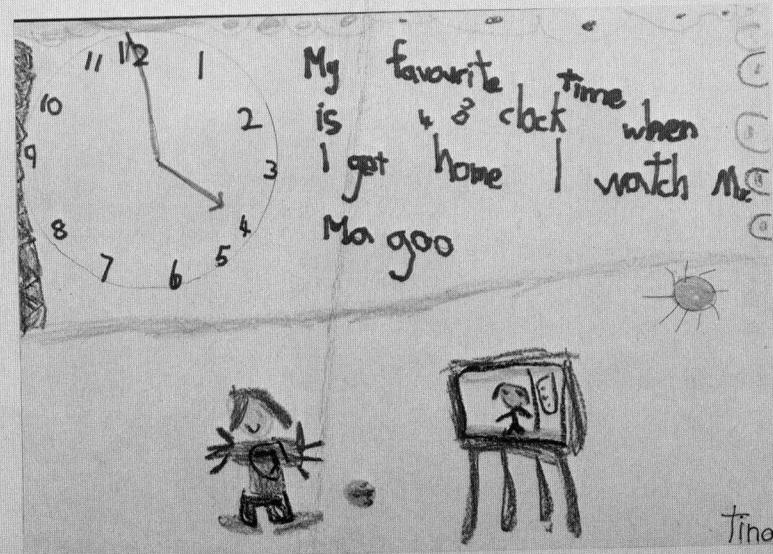 11 12 1
10 2
9 3
8 4
7 6 5
My favourite time
is 4 o clock when
I get home I watch Mr
Ma goo
Tina